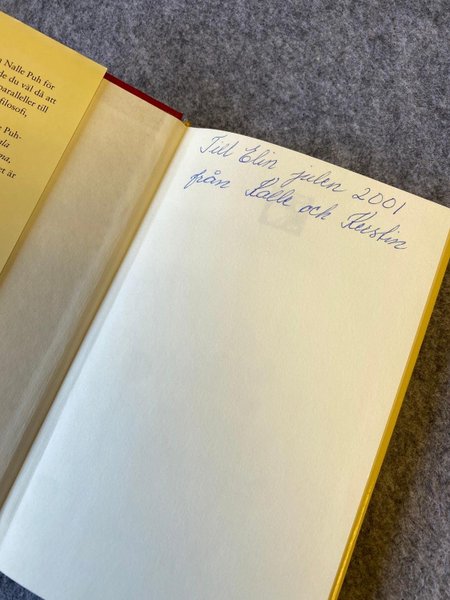 n Nalle Puh för
de du väl då att
paralleller till
filosofi,
Puh-
ula
ma,
et är
Till Elin julen 2001
från Kalle och Kerstin